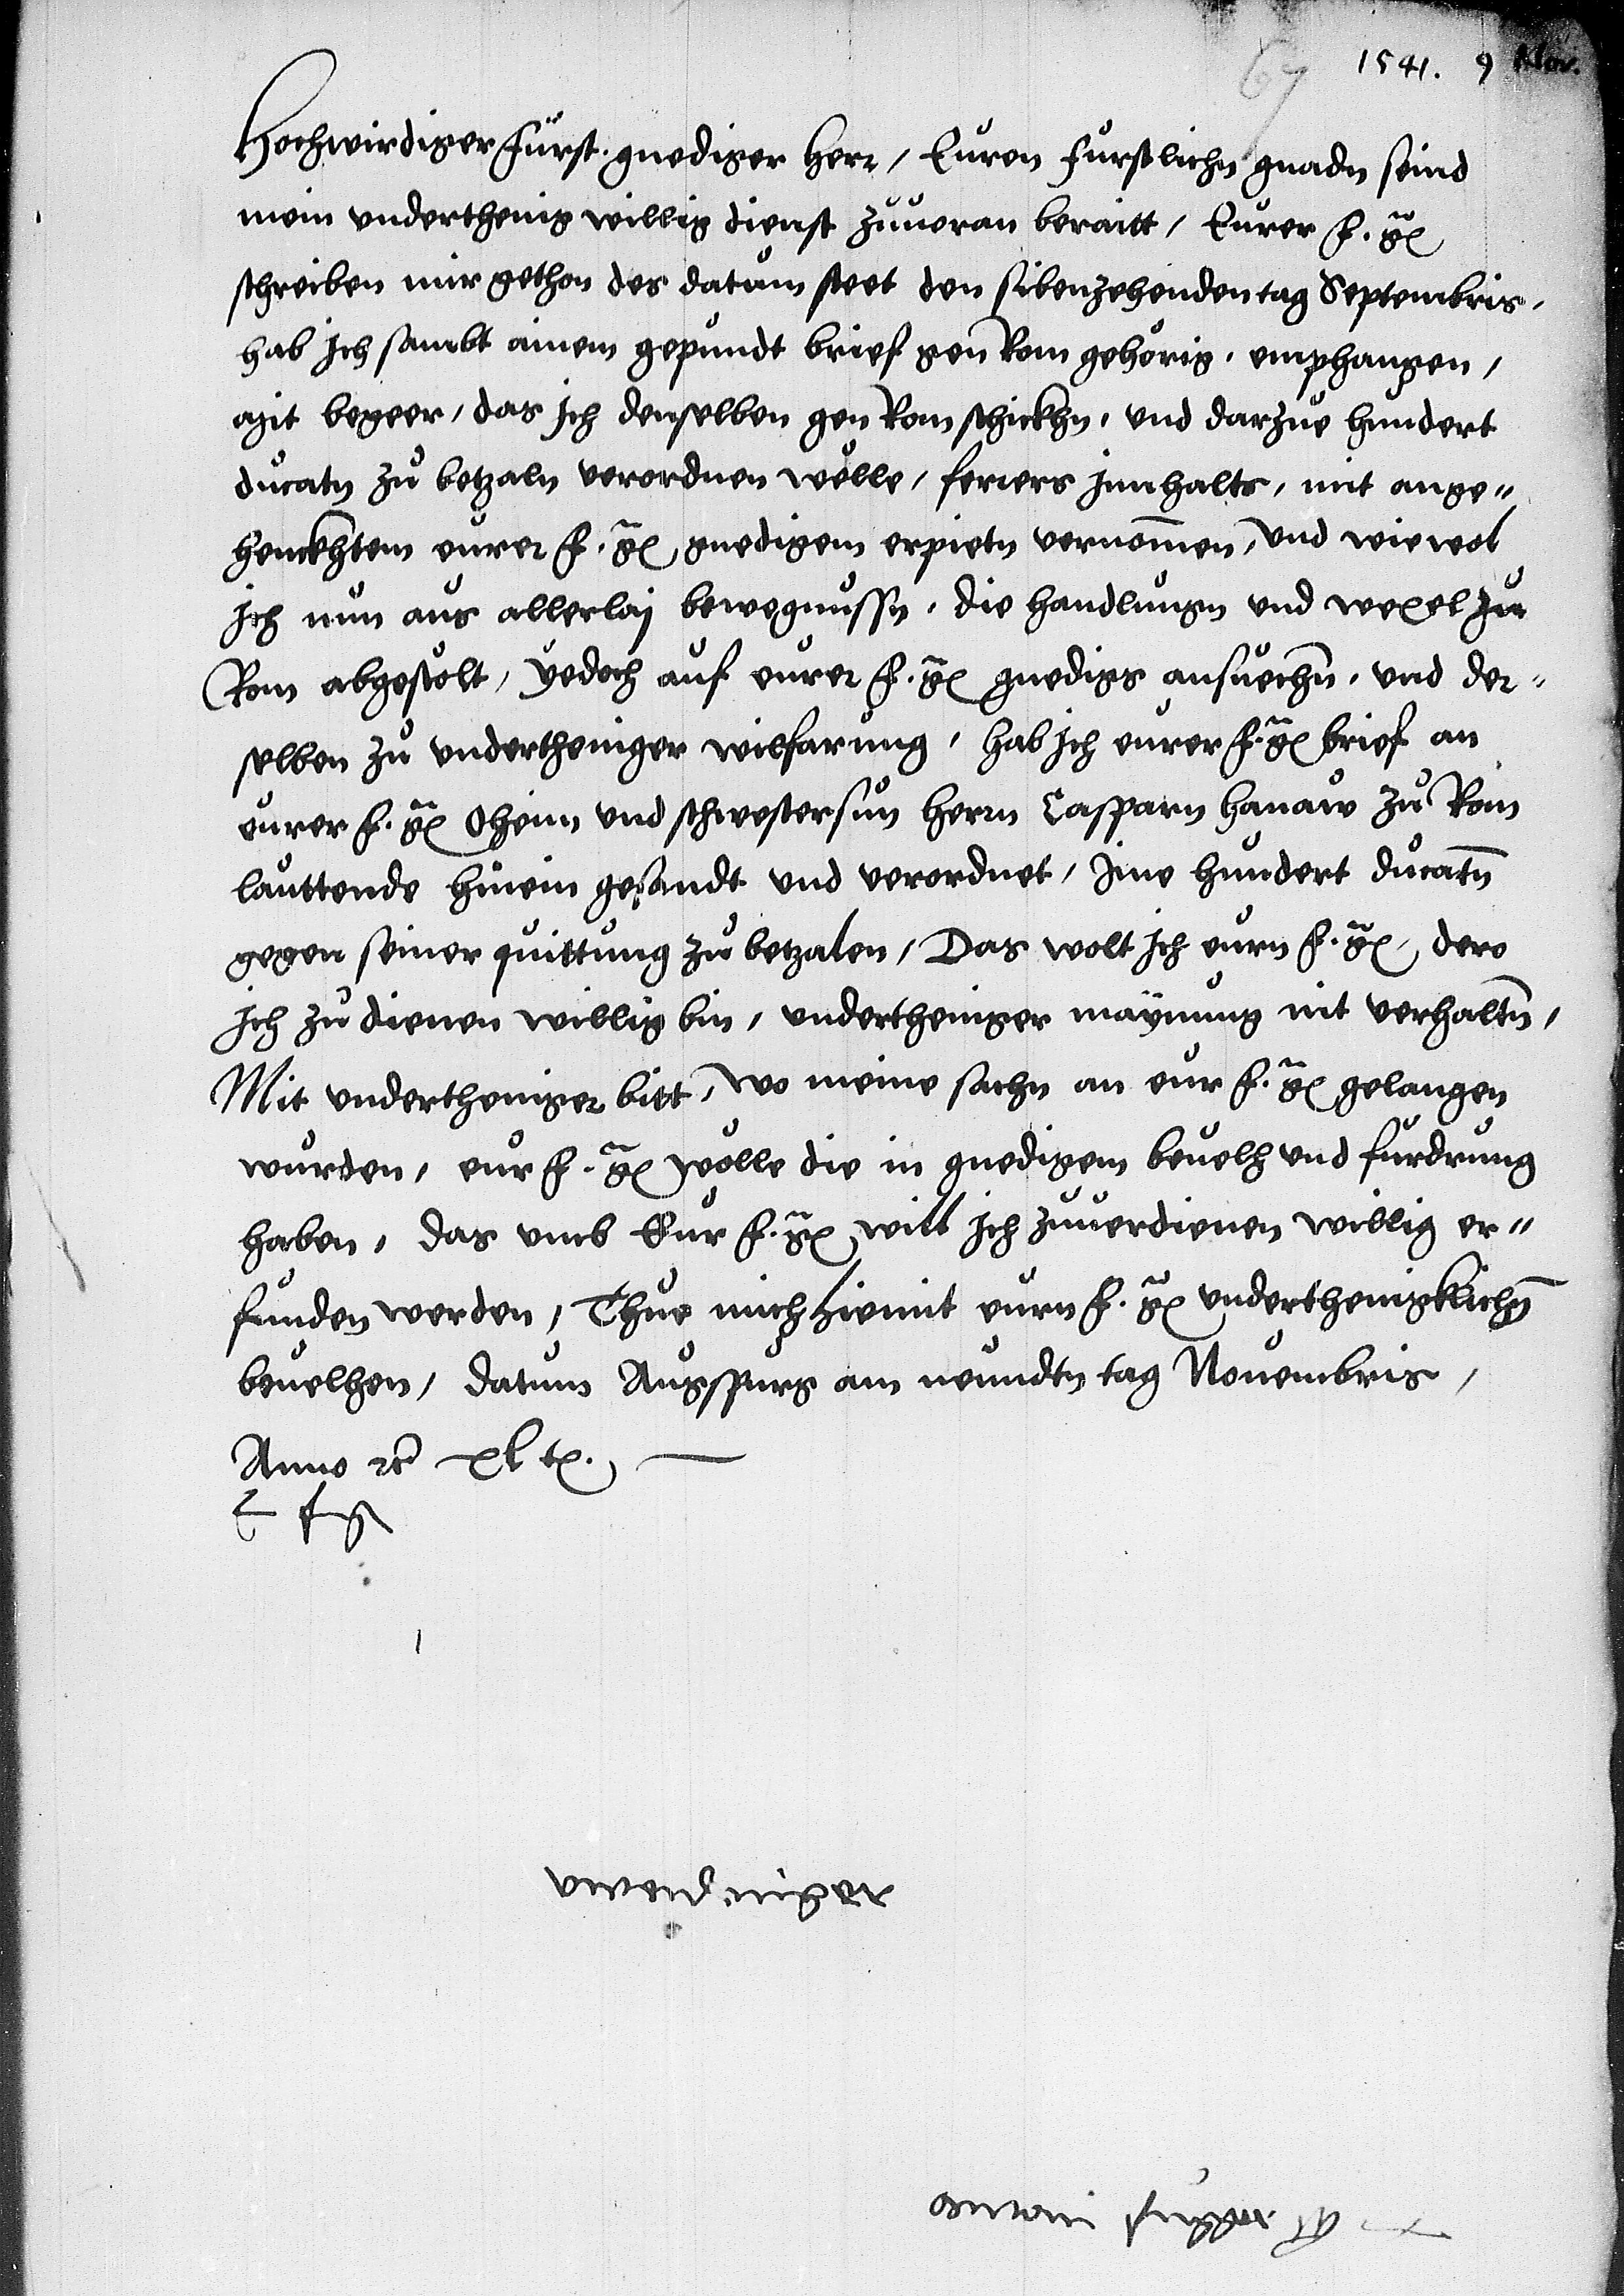 67 1541. 9 Nov.
Hochwirdiger Fürst. gnediger Herr, Euren furstlichn gnadn seind
mein underthenig willig dienst zuuoran beraitt, Eurer F. G.
schreiben mir gethon des datum steet den sibenzehenden tag Septembris,
hab ich sambt ainem gepundt brief gen Rom gehörig, emphangen,
mit begeer, das ich denselben gen Rom schickhn, und darzue hundert
ducatn zu betzaln verordnen wölle, ferrers innhalts, mit ange-
henckhtem eurer F. G. gnedigem erpietn vernomen, Und wiewol
ich nun aus allerlaj bewegnussn, die handlungen und wexel zu
Rom abgestolt, yedoch auf eurer F. G. gnedigs ansuechn, und der-
selben zu undertheniger wilfarung, hab ich eurer F. G. brief an
eurer F. G. Oheim und schwestersun Herrn Casparn Hanaw zu Rom
lauttende hinein gesandt und verordnet, Jme hundert ducatn
gegen seiner quittung zu betzalen, Das wolt ich eurn F. G. dero
ich zu dienen willig bin, undertheniger maynung nit verhaltn,
Mit undertheniger bitt, Wo meine sachn an eur F. G. gelangen
wurden, eur F. G. wolle die in gnedigem beuelh und furdrung
haben, das umb Eur F. G. will ich zuuerdienen willig er-
funden werden, Thue mich hiemit eurn F. G. underthenigklichn
beuelhen, datum Augspurg am neundtn tag Nouembris,
Anno etc. xlj.
E f g
Anthoni Fugger